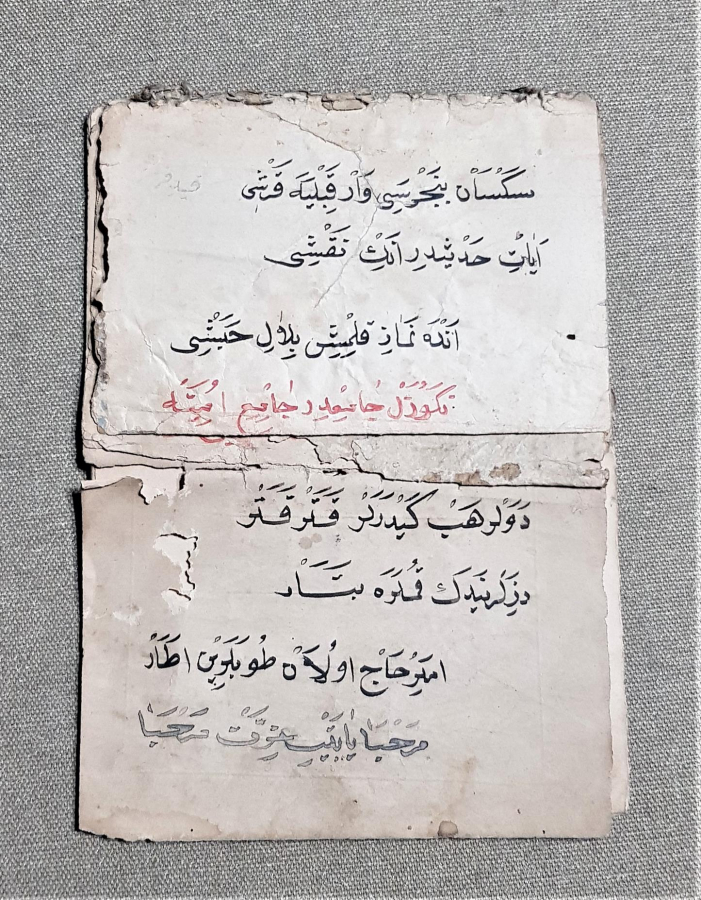 سَكْسَانْ پَنْجَرَسِى وَارْ قِبْلَيَه قَرْشِى
اَيَاتِ حَدْيثدِر اَنكْ نَقْشِى
اَنْدَه نَمَازِ قِلْمِشِ بِلَالِ حَبَشِى
كُوزَلْ جَامِعدِر جَامِعِ اُمَيَّه
دَوَلَر هَبْ كَيْدَرَلَرْ قَتَرْ قَتَرْ
دِزِلَرنيدَك قُملَرَه بَتَارْ
امِيرُ حَاج اوُلَانْ طُوپلَرِينْ اطَارْ
مَرْحَبَا يَا بَيْتِ عِزَّتْ مَرْحَبَا